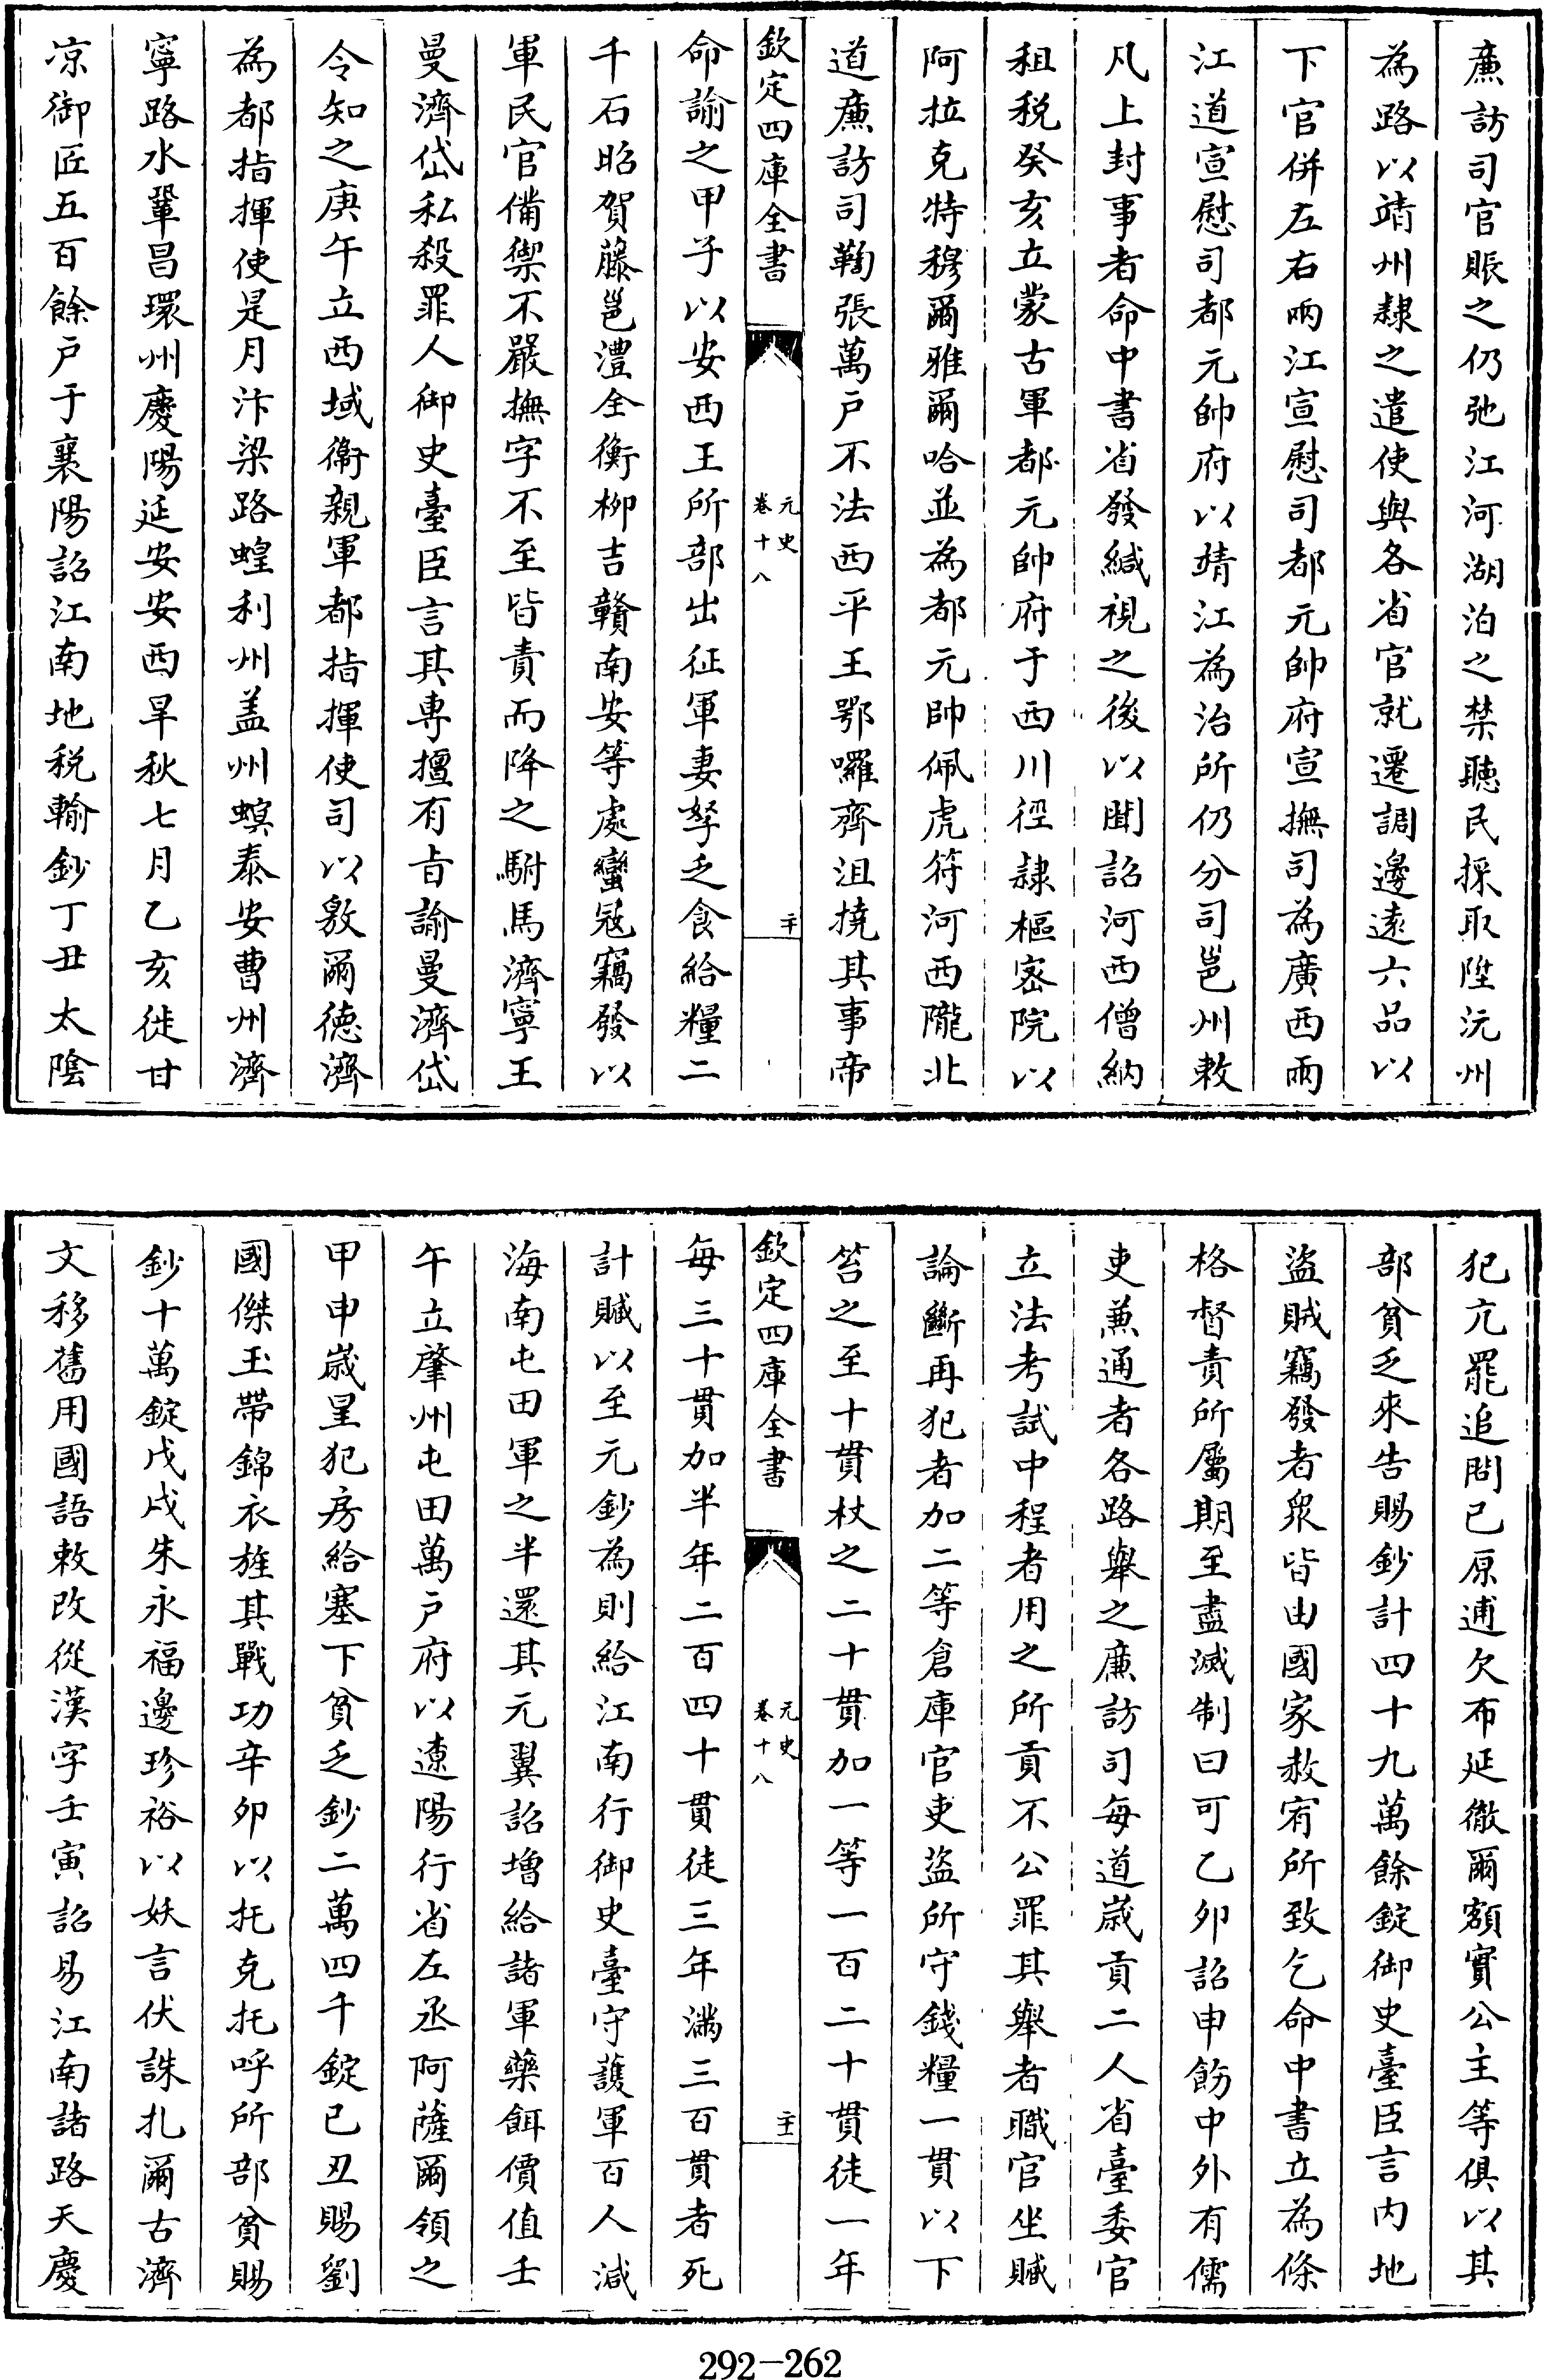 廉訪司官賬之仍弛江河湖泊之禁聽民採取陞沅州
為路以靖州隸之遣使與各省官就遷調邊逺六品以
下官併左右兩江宣慰司都元帥府宣撫司為廣西兩
江道宣慰司都元帥府以靖江為治所仍分司邕州敕
凡上封事者命中書省發緘視之後以聞詔河西僧納
租税癸亥立蒙古軍都元帥府于西川徑隸樞宻院以
阿拉克特穆爾雅爾哈並為都元帥佩虎符河西隴北
道廉訪司鞫張萬户不法西平王鄂囉齊沮撓其事帝
欽定四庫全書
元史
卷十八
二十
命諭之甲子以安西王所部出征軍妻孥乏食給糧二
千石昭賀藤邕澧全衡栁吉贛南安等處蠻冦竊發以
軍民官備禦不嚴撫字不至皆責而降之駙馬濟寧王
曼濟岱私殺罪人御史臺臣言其專擅有㫖諭曼濟岱
令知之庚午立西域衛親軍都指揮使司以敖爾德濟
為都指揮使是月汴梁路蝗利州盖州螟泰安曹州濟
寧路水鞏昌環州慶陽延安安西旱秋七月乙亥徙甘
凉御匠五百餘户于襄陽詔江南地税輸鈔丁丑太陰
犯亢罷追問已原逋欠布延徹爾額實公主等俱以其
部貧乏來告賜鈔計四十九萬餘錠御史臺臣言内地
盜賊竊發者衆皆由國家赦宥所致乞命中書立為條
格督責所屬期至盡滅制曰可乙夘詔申飭中外有儒
吏兼通者各路舉之廉訪司每道嵗貢二人省臺委官
立法考試中程者用之所貢不公罪其舉者職官坐贓
論斷再犯者加二等倉庫官吏盜所守錢糧一貫以下
笞之至十貫杖之二十貫加一等一百二十貫徒一年
欽定四庫全書
元史
卷十八
二十一
每三十貫加半年二百四十貫徒三年滿三百貫者死
計贓以至元鈔為則給江南行御史臺守護軍百人減
海南屯田軍之半還其元翼詔増給諸軍藥餌價值壬
午立肇州屯田萬户府以遼陽行省左丞阿薩爾領之
甲申嵗星犯房給塞下貧乏鈔二萬四千錠己丑賜劉
國傑玉帶錦衣旌其戰功辛夘以托克托呼所部貧賜
鈔十萬錠戊戌朱永福邊珍裕以妖言伏誅扎爾古濟
文移舊用國語敕改從漢字壬寅詔易江南諸路天慶
292-262